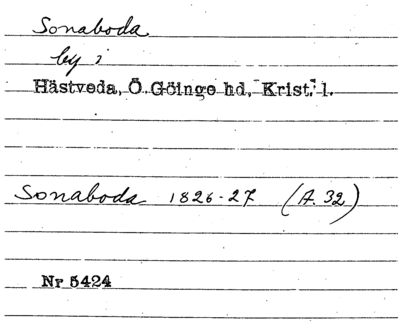 Sonaboda
by i
Hästveda, Ö. Göinge hd, Krist. l.
Sonaboda 1826-27 (A. 32)
Nr 5424